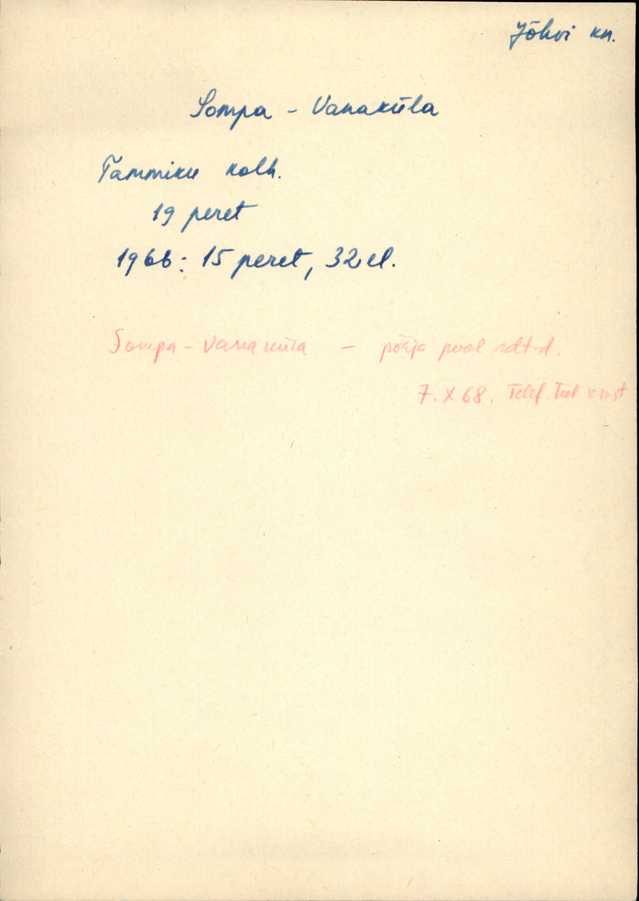 Jõhvi kn.
Sompa - Vanaküla
Tammiku kolh.
19 peret
1966: 15 peret, 32 el.
Sompa - Vanaküla - põhja pool rdt-d.
7. X 68. Telef. Tul